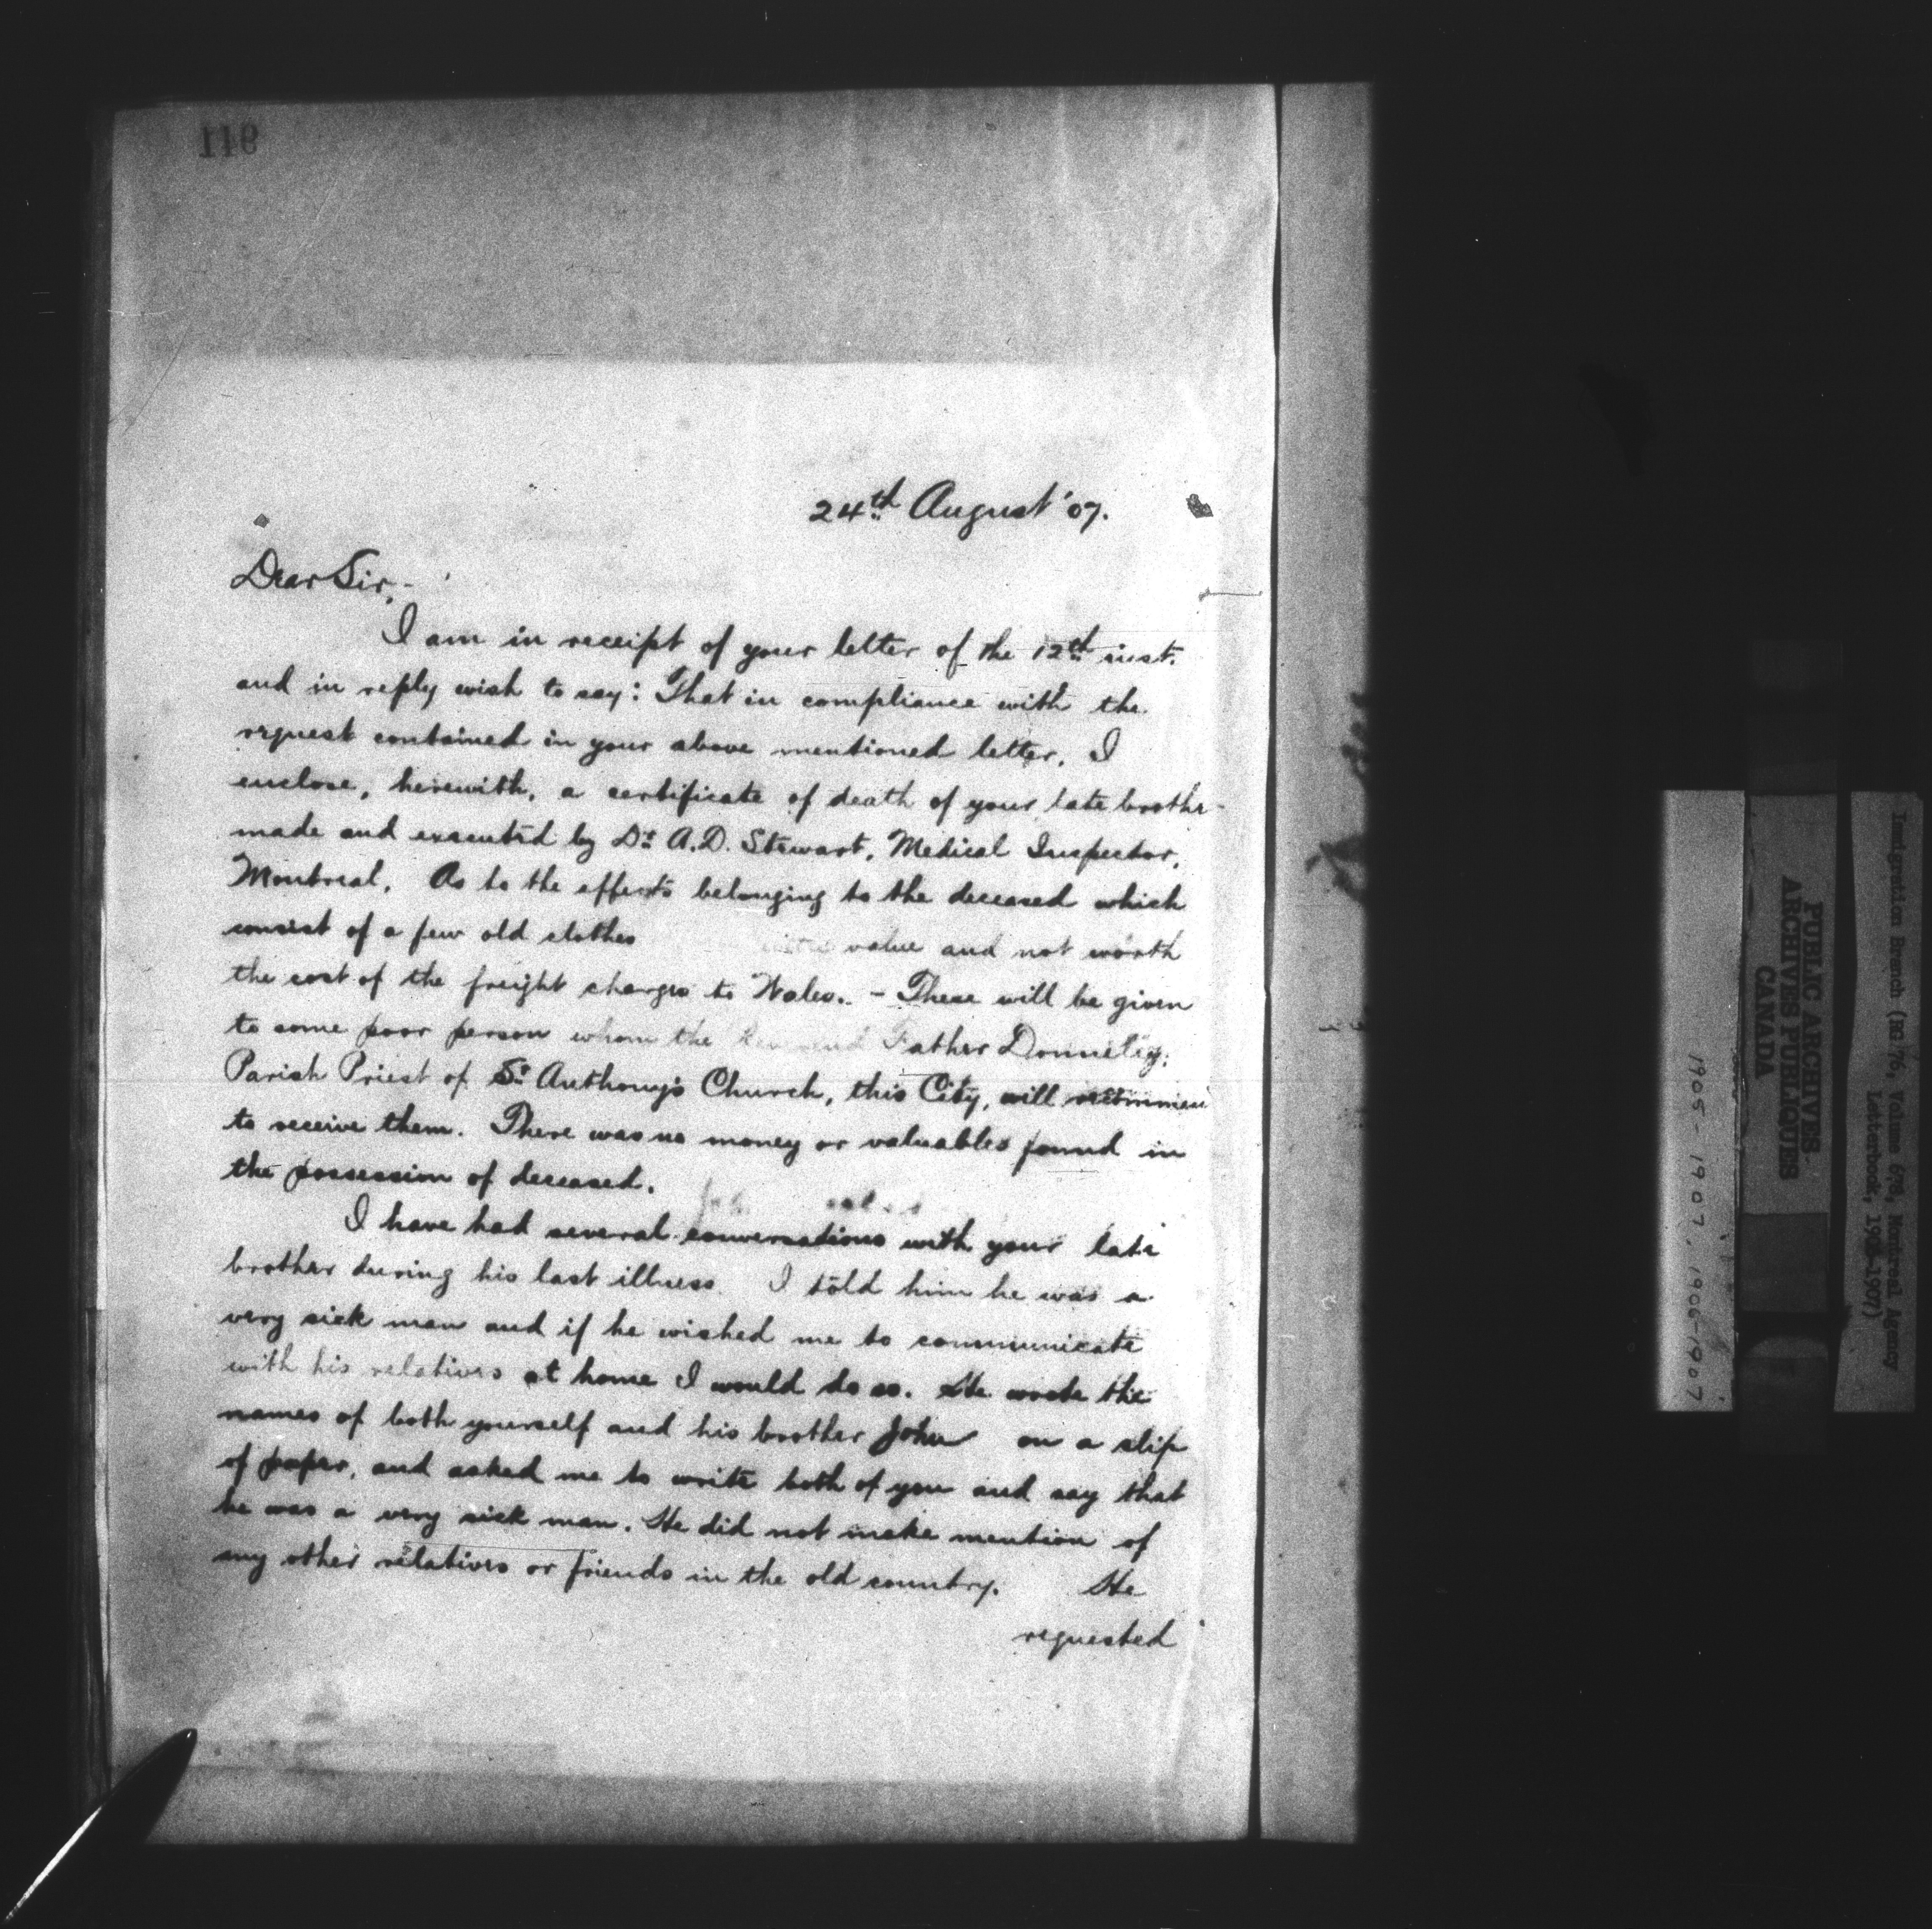 116
24th August '07.
Dear Sir,-
I am in receipt of your letter of the 12th inst.
and in reply wish to say: That in compliance with the
request contained in your above mentioned letter, I
enclose, herewith, a certificate of death of your late brother
made and executed by Dr A.D. Stewart, Medical Inspector,
Montreal. As to the effects belonging to the deceased which
consist of a few old clothes value and not worth
the cost of the freight charges to Wales. - These will be given
to some poor person whom the Reverend Father Donnelly,
Parish Priest of St Anthony's Church, this City, will recommend
to receive them. There was no money or valuables found in
the possession of deceased.
I have had several conversations with your late
brother during his last illness. I told him he was a
very sick man and if he wished me to communicate
with his relatives at home I would do so. He wrote the
names of both yourself and his brother John on a slip
of paper, and asked me to write both of you and say that
he was a very sick man. He did not make mention of
any other relatives or friends in the old country. He
requested
PUBLIC ARCHIVES
ARCHIVES PUBLIQUES
CANADA
Immigration Branch (RG 76, Volume 678, Montreal Agency
Letterbook, 1905-1907)
1905-1907, 1906-1907